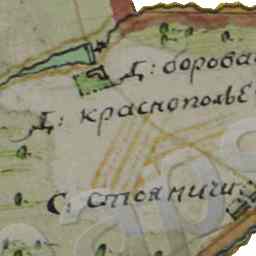 Д: борова
Д: краснополье
С: стояничи